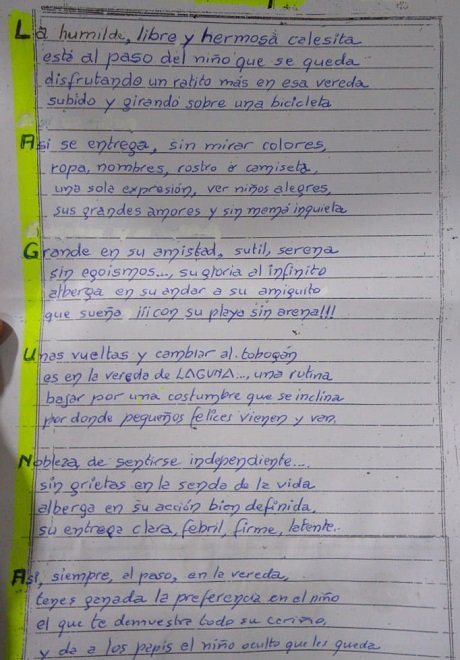 La humilde, libre y hermosa calesita
está al paso del niño que se queda
disfrutando un ratito más en esa vereda
subido y girando sobre una bicicleta
Así se entrega, sin mirar colores,
ropa, nombres, rostro o camiseta,
una sola expresión, ver niños alegres,
sus grandes amores y sin mamá inquieta
Grande en su amistad, sutil, serena
sin egoismos..., su gloria al infinito
alberga en su andar a su amiguito
que sueña ¡¡¡con su playa sin arena!!!
Unas vueltas y cambiar al tobogán
es en la vereda de LAGUNA..., una rutina
bajar por una costumbre que se inclina
por donde pequeños felices vienen y van.
Nobleza de sentirse independiente...
sin grietas en la senda de la vida
alberga en su acción bien definida,
su entrega clara, febril, firme, latente.
Así, siempre, al paso, en la vereda,
tenés ganada la preferencia en el niño
el que te demuestra todo su cariño,
y da a los papis el niño oculto que les queda